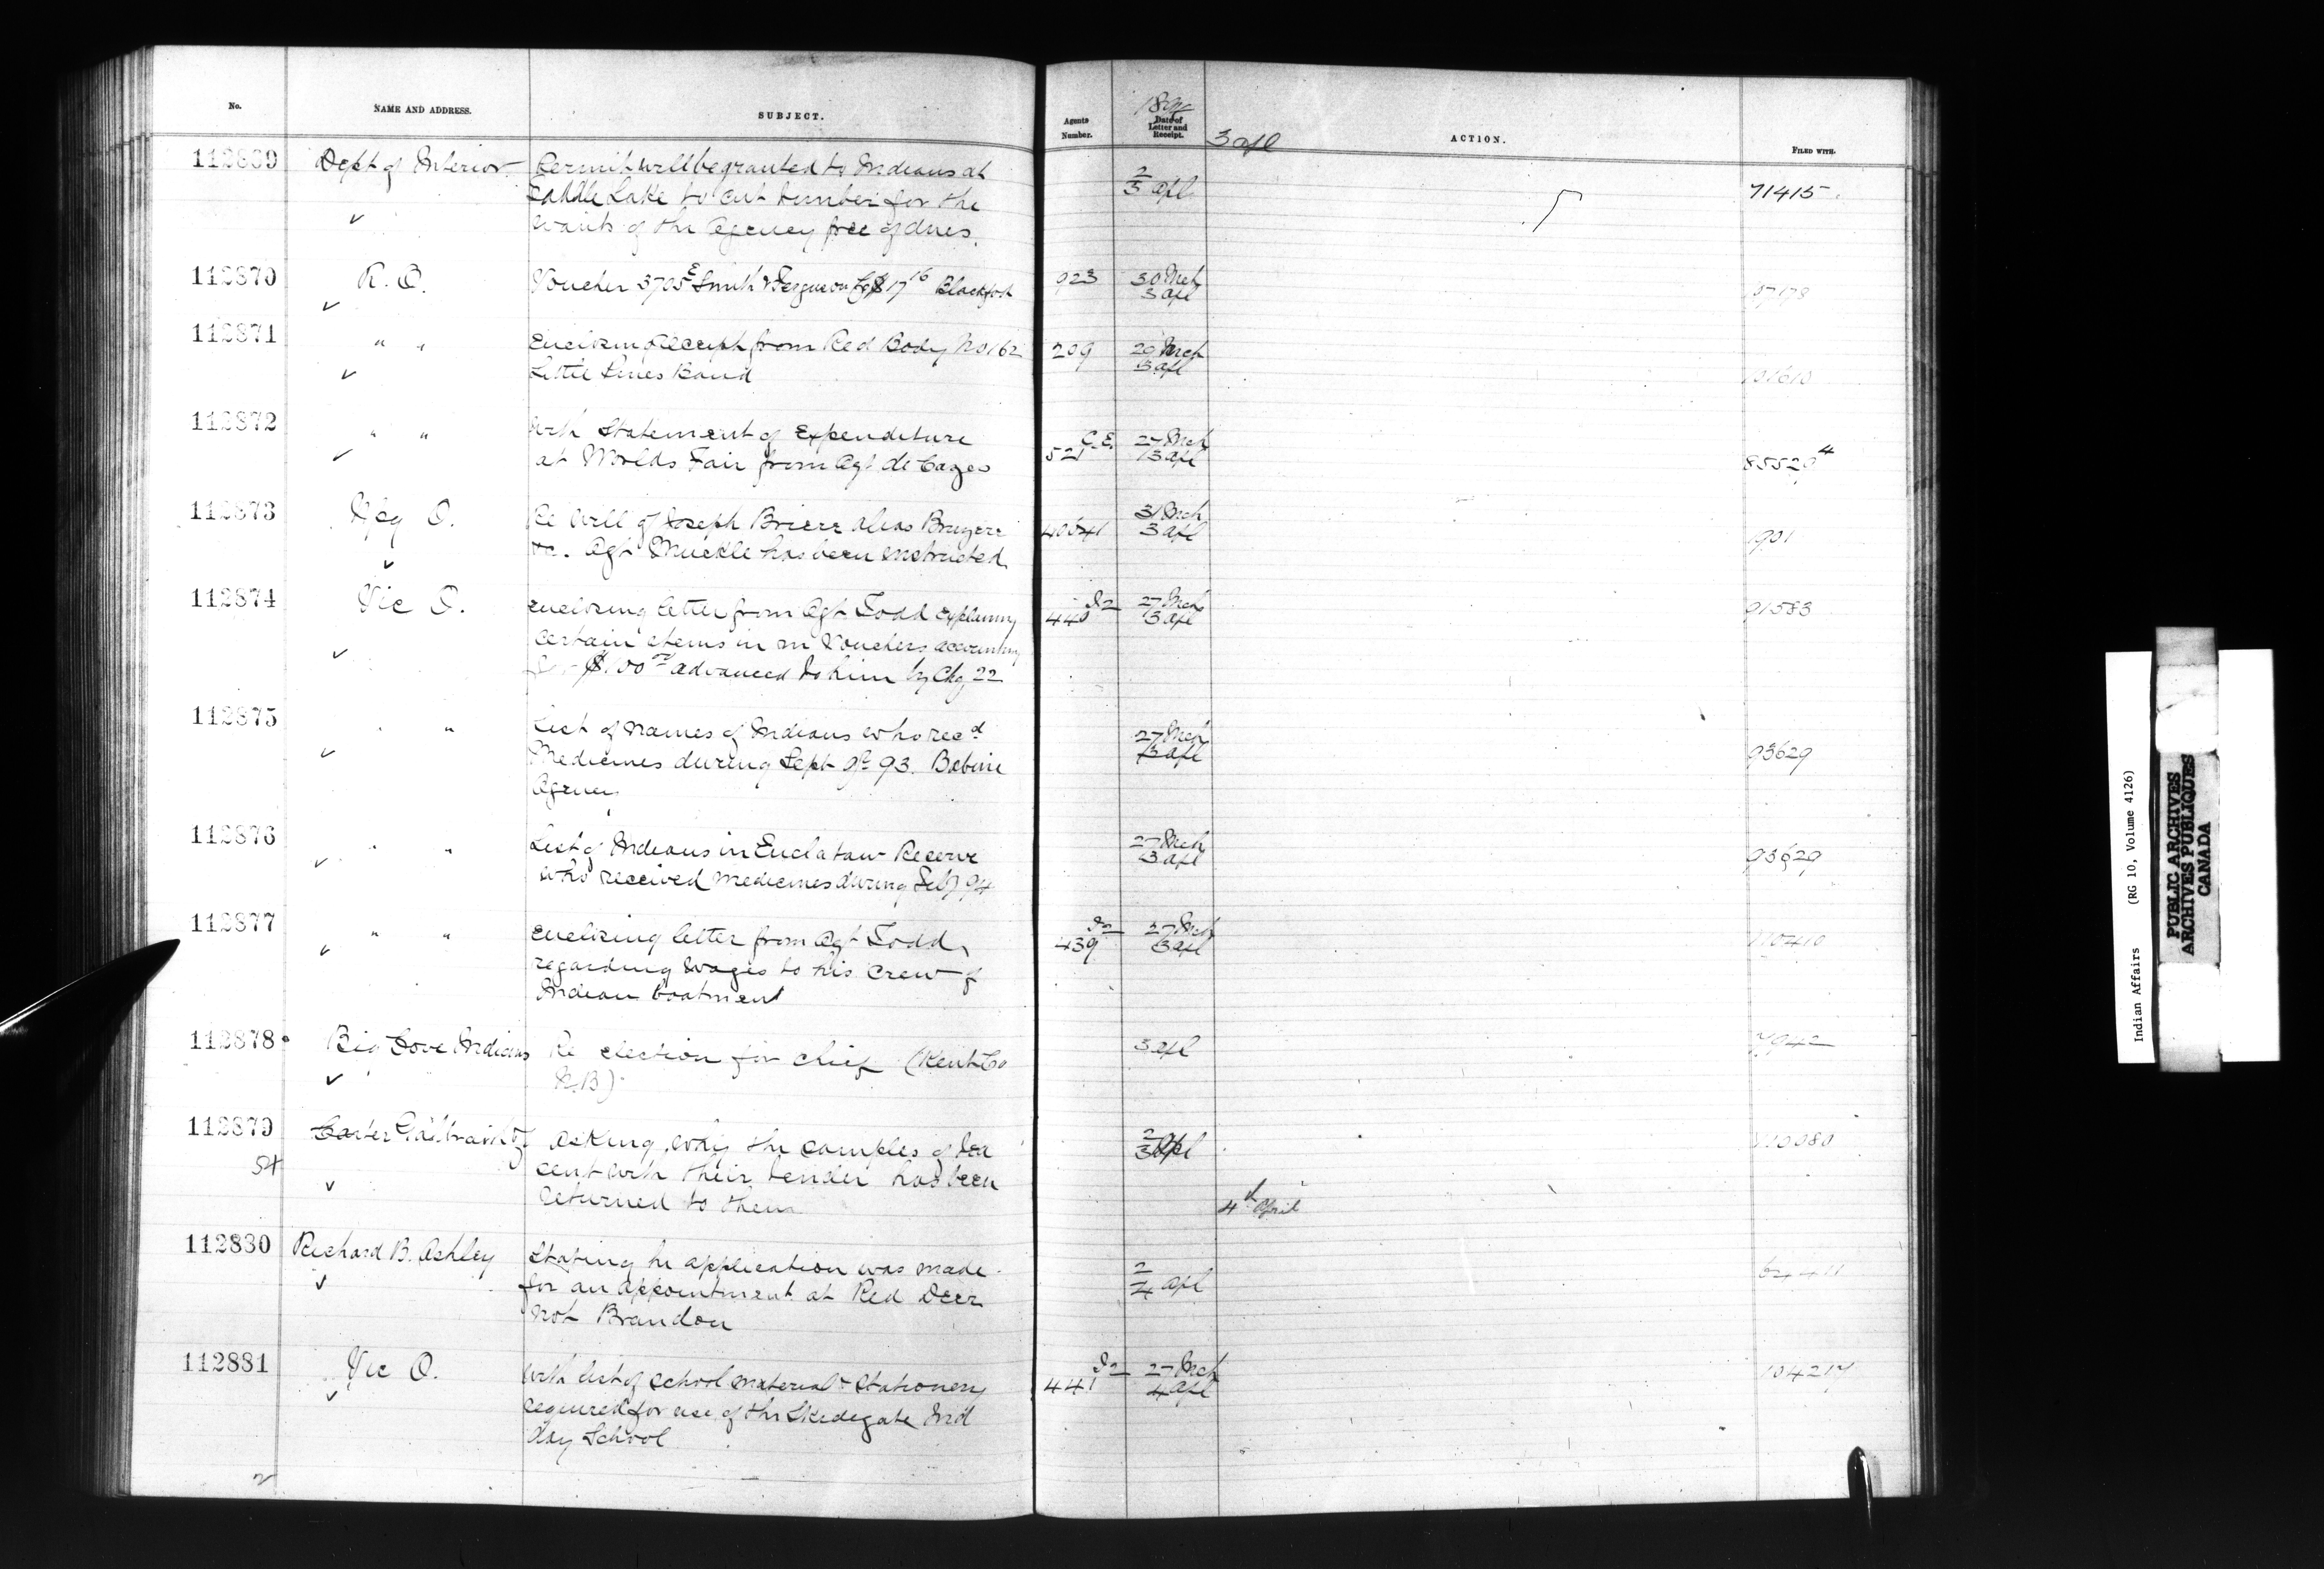 No. NAME AND ADDRESS. SUBJECT. Agents Number. 1894 Date of Letter and Receipt. 3 apl ACTION. FILED WITH.
112869 Dept of Interior Permit will be granted to Indians at 2/3 apl 71415
Saddle Lake to cut timber for the
wants of the agency free of dues.
112870 R. O. Voucher 3705 Smith & Ferguson Co $17 16 Blackfoot 923 30 Mch 3 apl
112871 " " Enclosing receipt from Red Body No 162 209 20 Mch 3 apl
Little Pines Band
112872 " " With Statement of Expenditure C.E. 521 27 Mch 3 apl 85529 4
at Worlds Fair from Agt de Cazes
112873 Wpg O. Re Will of Joseph Briere alias Bruyere 31 Mch 3 apl 1901
Agt Muckle has been instructed
112874 Vic O. Enclosing letter from Agt Todd explaining 440 27 Mch 3 apl 91583
certain items in Vouchers accounting
$100 00 advanced to him by Chq 22
112875 " " List of names of Indians who recd 27 Mch 3 apl 93629
Medicines during Sept Qr 93. Babine
Agency
112876 " " List of Indians in Euclataw Reserve 27 Mch 3 apl 93629
who received medicines during Feby 94
112877 " " Enclosing letter from Agt Todd, 439 27 Mch 3 apl
regarding wages to his crew of
Indian boatment
112878 Big Cove Indians Re election for chief (Kent Co 3 apl
N.B)
112879 asking why the samples of tea 2/3 apl
sent with their tender has been
returned to them 4th April
112880 Richard B. Ashley Stating he application was made 2/4 apl
for an appointment at Red Deer
not Brandon
112881 Vic O. With list of school material & stationery 441 27 Mch 4 apl 104217
required for use of the Skidegate Ind
day School
Indian Affairs (RG 10, Volume 4126)
PUBLIC ARCHIVES
ARCHIVES PUBLIQUES
CANADA